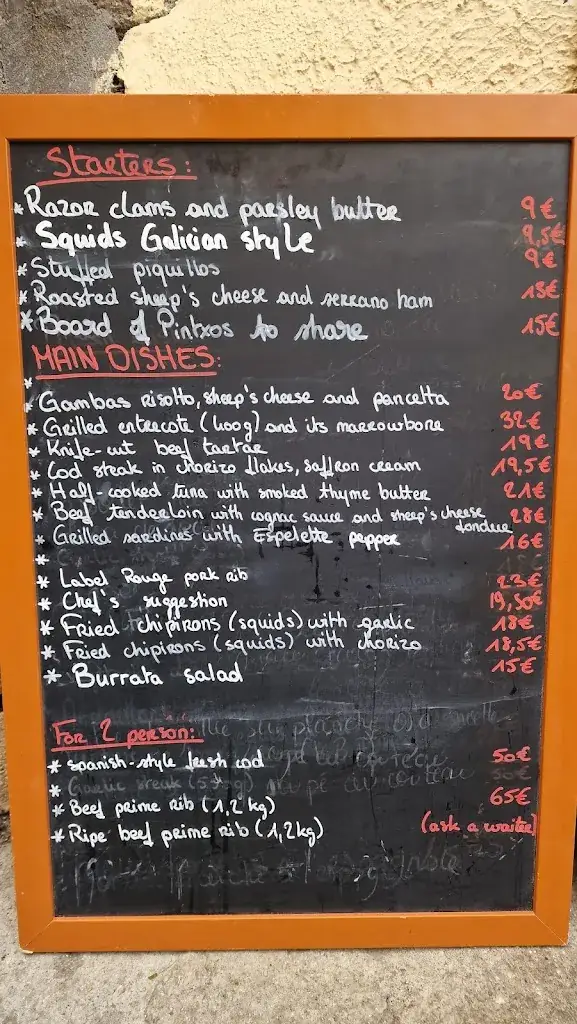 Starters:
* Razor clams and parsley butter 9€
* Squids Galician style 9,5€
* Stuffed piquillos 9€
* Roasted sheep's cheese and serrano ham 13€
* Board of Pintxos to share 15€
MAIN DISHES:
*
* Gambas risotto, sheep's cheese and pancetta 20€
* Grilled entrecote (400g) and its marrowbone 32€
* Knife-cut beef tartar 19€
* Cod steak in chorizo flakes, saffron cream 19,5€
* Half-cooked tuna with smoked thyme butter 21€
* Beef tenderloin with cognac sauce and sheep's cheese 28€
fondue
* Grilled sardines with Espelette pepper 16€
*
* Label Rouge pork rib 23€
* Chef's suggestion 19,50€
* Fried chipirons (squids) with garlic 18€
* Fried chipirons (squids) with chorizo 18,5€
* Burrata salad 15€
For 2 person:
* Spanish-style fresh cod 50€
* Beef prime rib (1,2 kg) 65€
* Ripe beef prime rib (1,2kg) (ask a waiter)